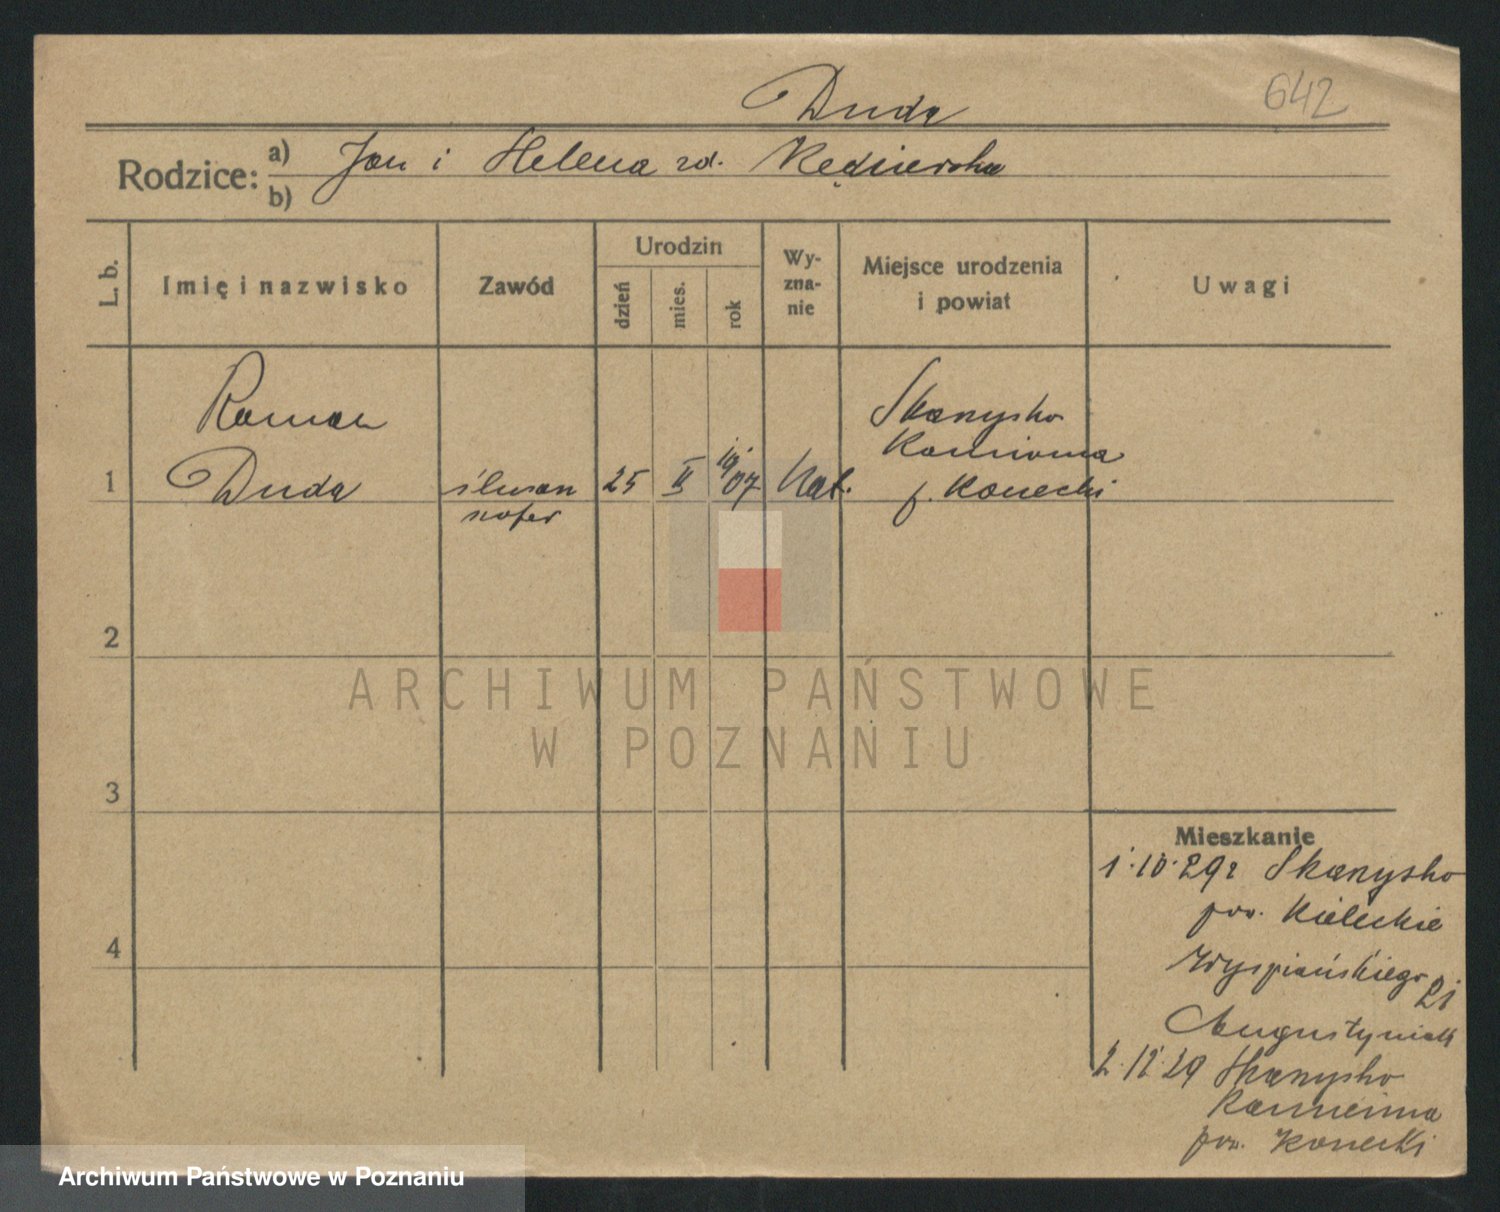 642
Duda
Rodzice: a) Jan i Helena zd. Kędzierska
b)
L. b. Imię i nazwisko Zawód Urodzin dzień mies. rok Wy-zna-nie Miejsce urodzenia i powiat Uwagi
Roman
Duda
1 ślusarz 25 II 1907 Kat.
szofer
Skarżysko
Kamienna
p. Konecki
2
3
4
Mieszkanie
1.10.29r Skarżysko
pow. Kieleckie
Wyspiańskiego 21
Augustyniak
2.12.29 Skarżysko
Kamienna
pow. Konecki
ARCHIWUM PAŃSTWOWE
W POZNANIU
Archiwum Państwowe w Poznaniu